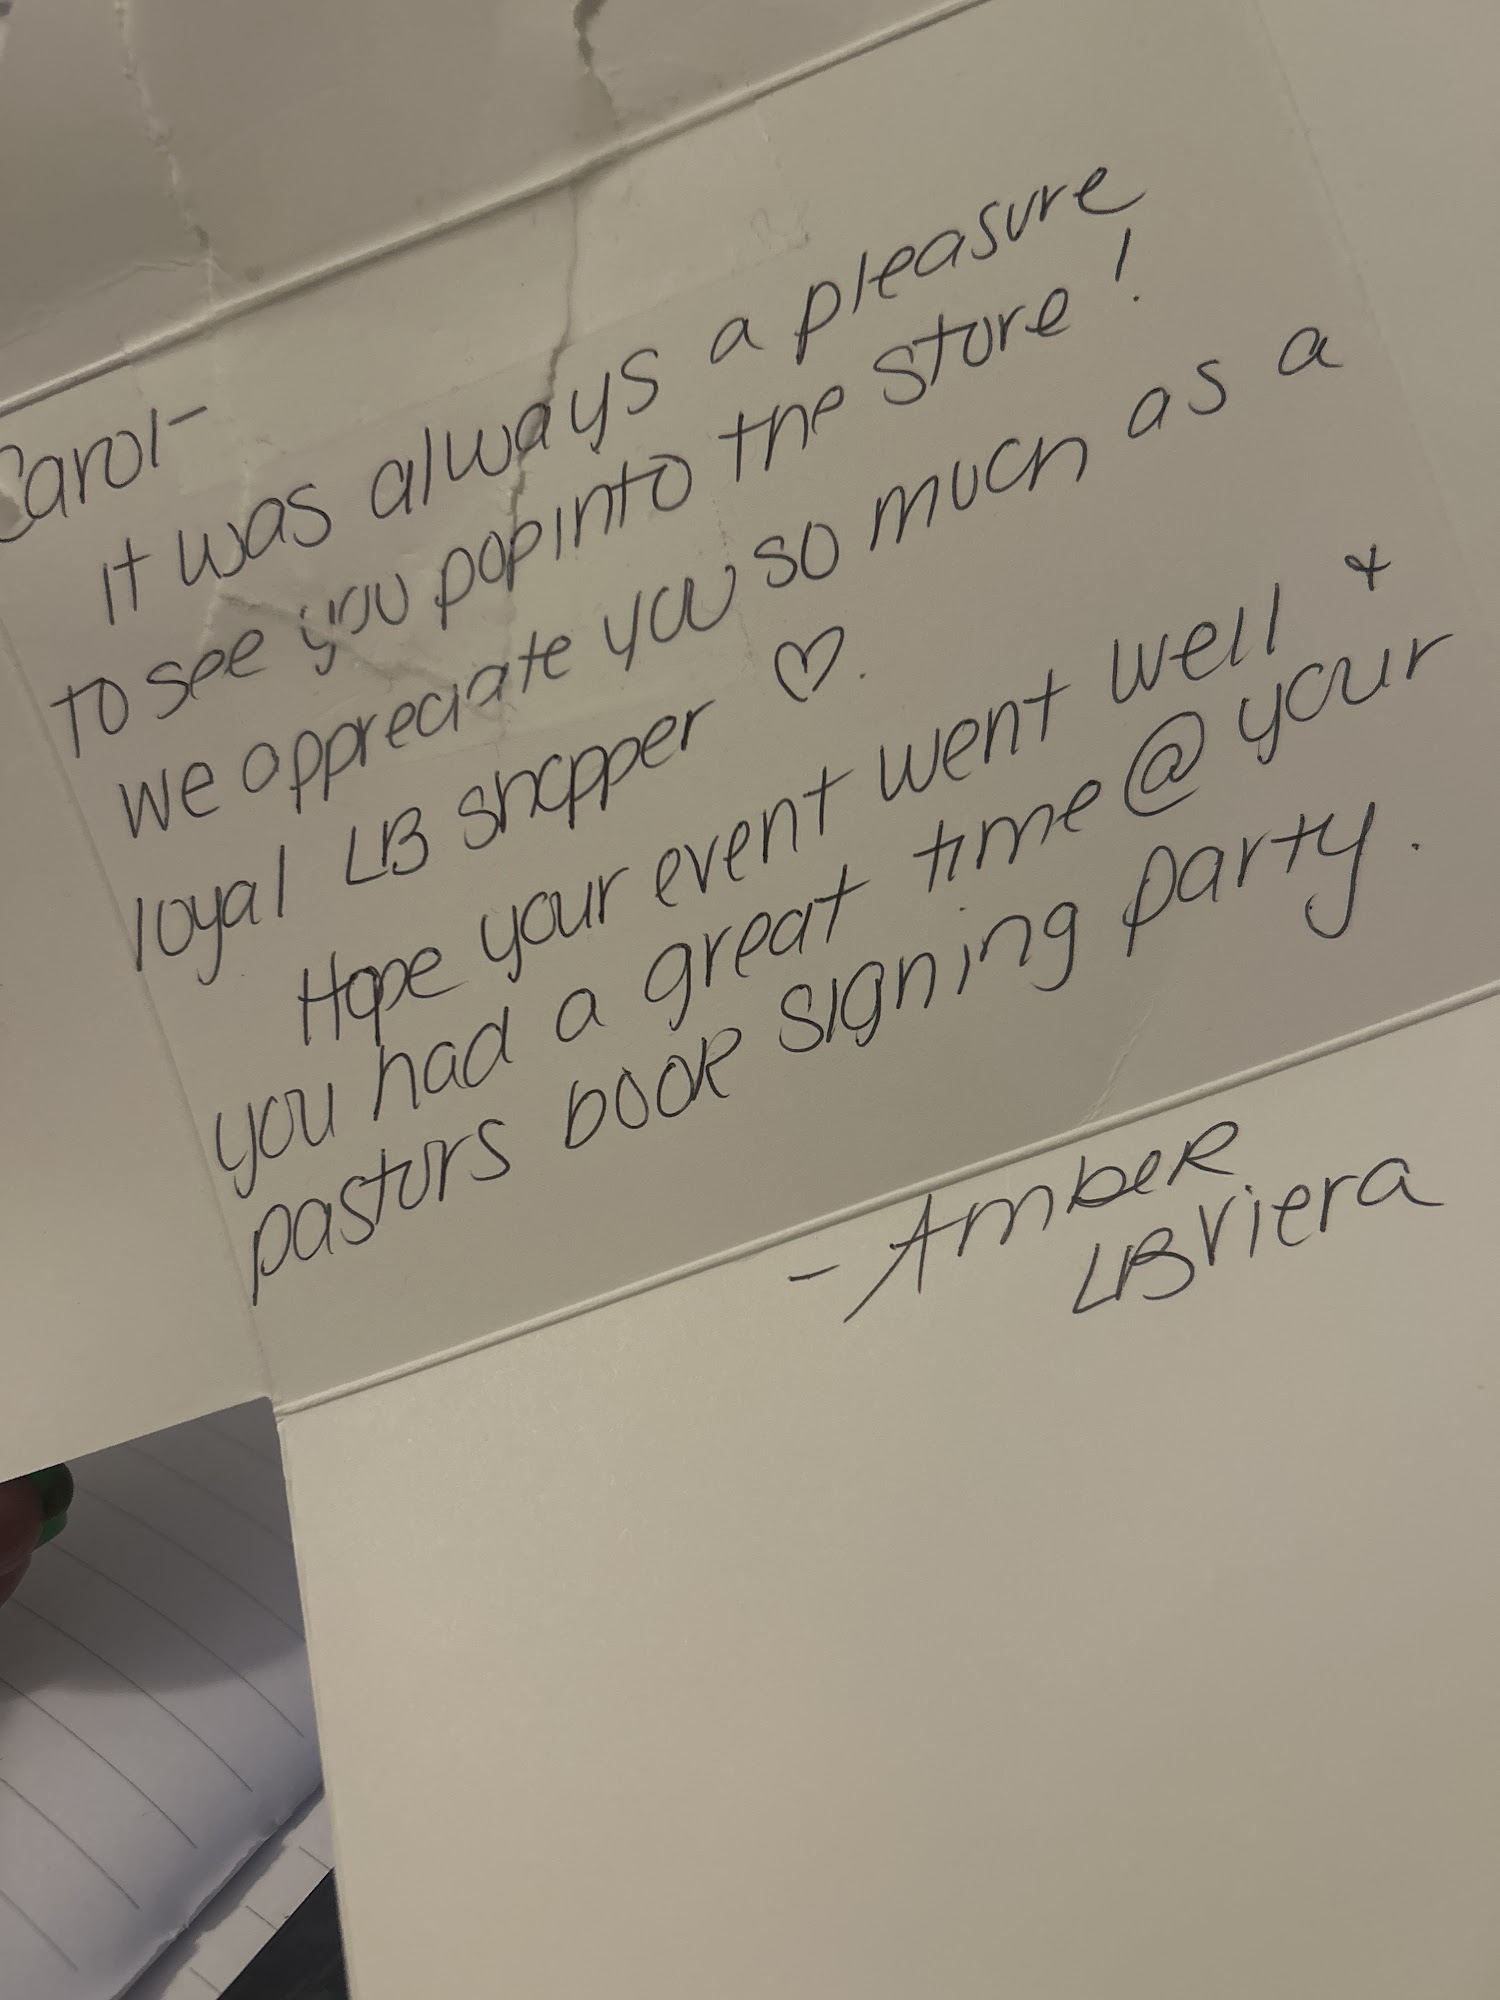 Carol-
It was always a pleasure
to see you pop into the store!
we appreciate you so much as a
loyal LB shopper ♡.
Hope your event went well +
you had a great time @ your
pastors book signing party.
- Amber
LB Viera